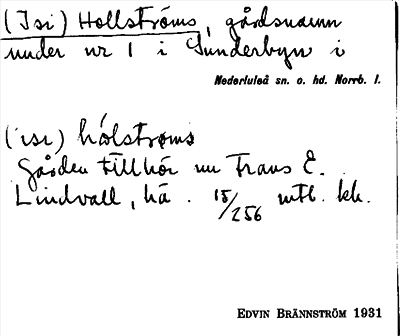 (Isi) Hollströms, gårdsnamn
under nr 1 i Sunderbyn i
Nederluleå sn. o. hd. Norrb. l.
(isi) hólstrøms
Gården tillhör nu Frans E.
Lindvall, hä. 15/256 mtl. kk.
EDVIN BRÄNNSTRÖM 1931